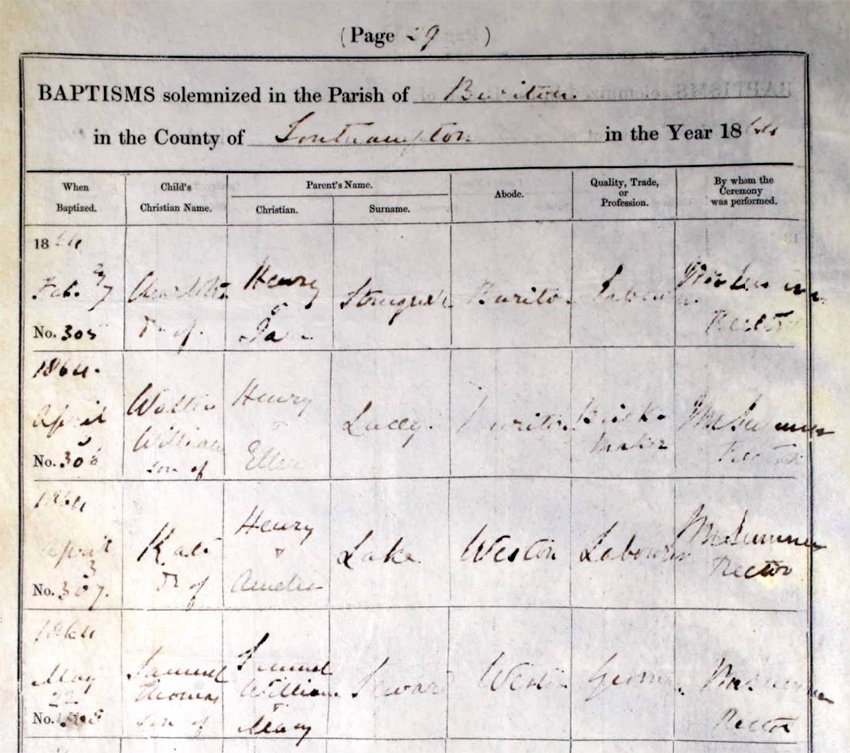 (Page 29 )
BAPTISMS solemnized in the Parish of Buriton
in the County of Southampton in the Year 1864
When Baptized. Child's Christian Name. Parent's Name. Christian. Surname. Abode. Quality, Trade, or Profession. By whom the Ceremony was performed.
1864
Feb. 7
No. 305
Charlotte
Dr of
Henry
&
Buriton
Labourer
Rector
1864.
April
No. 306
Walter
William
son of
Henry
&
Ellen
Lacey
Buriton
Brick
maker
Wm Sumner
Rector
1864
April
3
No. 307.
Kate
Dr of
Henry
&
Amelia
Lake
Weston
Labourer
Wm Sumner
Rector
1864
May
22
No. 308
Samuel
Thomas
son of
Samuel
William
&
Mary
Weston
Groom
Wm Sumner
Rector